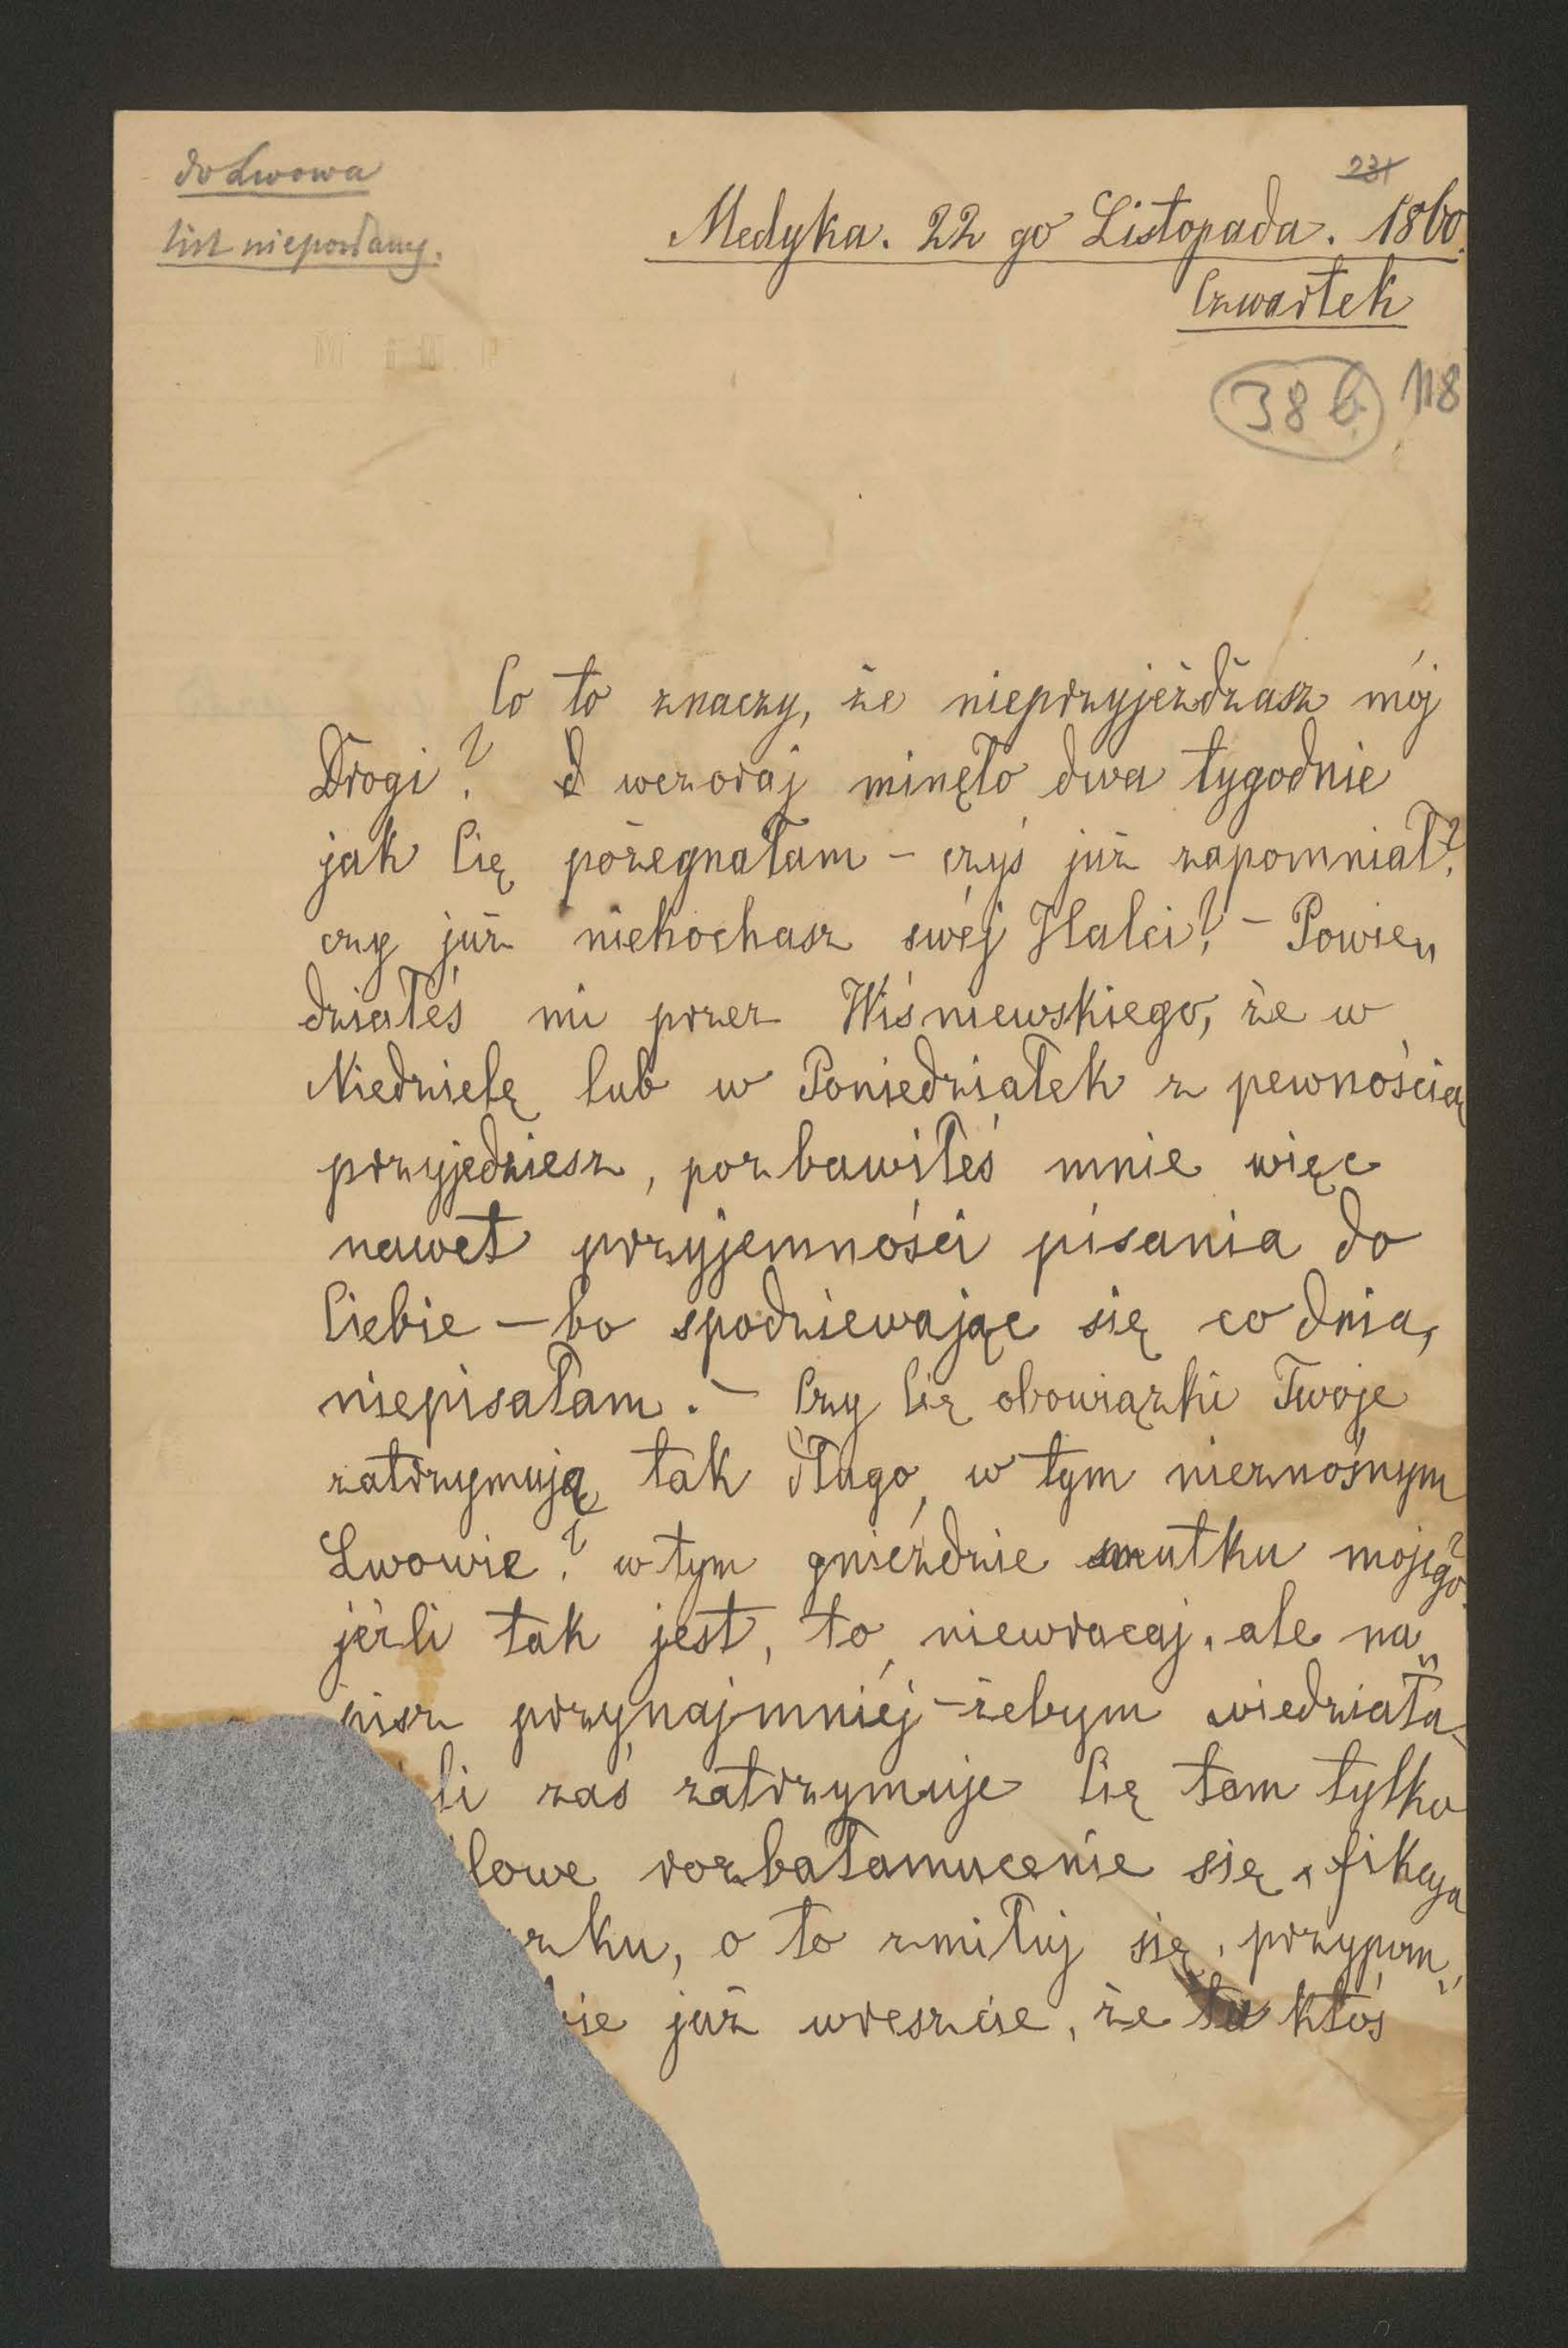 do Lwowa
list nieposłany.
231
Medyka. 22 go Listopada. 1860.
Czwartek
38 b 118
Co to znaczy, że nieprzyjeżdżasz mój
Drogi? wczoraj minęło dwa tygodnie
jak Cię pożegnałam – czyś już zapomniał?
czy już niekochasz swéj Halci? – Powie„
działeś mi przez Wiśniewskiego, że w
Niedzielę lub w Poniedziałek z pewnością
przyjedziesz, pozbawiłeś mnie więc
nawet przyjemności pisania do
Ciebie – bo spodziewając się co dnia,
niepisałam. – Czy Cię obowiązki Twoje
zatrzymują tak długo, w tym nieznośnym
Lwowie? w tym gnieździe smutku mojego?
jéżli tak jest, to niewracaj, ale na„
pisz przynajmniéj – żebym wiedziała
li zaś zatrzymuje Cię tam tylko
lowe rozbałamucenie się, fikcya
zku, o to zmiłuj się, przypom„
bie już wreszcie, że tu ktoś